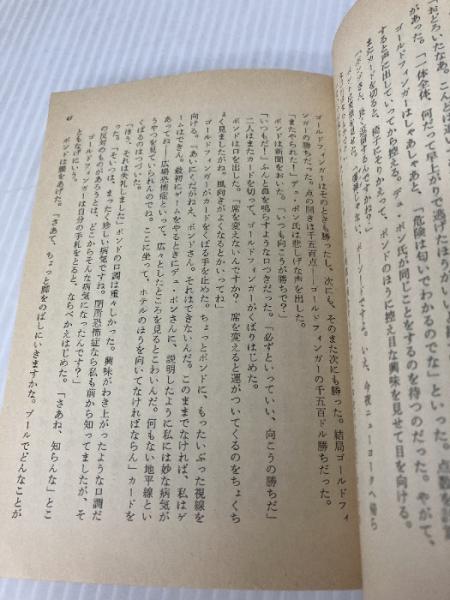 「おどろいたなあ。こんとは
があった。「一体全体、何だって早上がりで逃げたほうがいい
ゴールドフィンガーはしゃあしゃあと、「危険は匂いでわかるのでな」といった。点数を
すると声に出していってから控える。デュ・ポン氏が同じことをするのを待つのだった。やがて、
またカードを切ると、椅子にそりかえって、ボンドのほうに控え目な興味を見せて目を向ける。
「ボンドさん、長くご逗留するんですかね？」
ゴールドフィンガーはそのときも勝った。次にも、そのまた次にも勝った。結局ゴールドフィ
ンガーの勝ちだった。点の開きは千五百点――ゴールドフィンガーの千五百ドル勝ちだった。
「またやられた！」デュ・ポン氏は悲しげな声を出した。
ボンドは新聞をおいた。「いつも向こうが勝ちで？」
「いつもだ！」ふんと鼻を鳴らすような口つきだった。「必ずといっていい、向こうの勝ちだ」
二人はまたカードを切って、ゴールドフィンガーがくばりはじめた。
ボンドは口を出した。「席を変えないんですか？　席を変えると運がついてくるのをちょくち
ょく見ましたがね。風向きがよくなるとかいってね」
ゴールドフィンガーがカードをくばる手を止めた。ちょっとボンドに、もったいぶった視線を
向ける。「あいにくだがねえ、ボンドさん。それはできないんだ。このままでなければ、私はゲ
ームはできん。最初にゲームをやるときにデュ・ポンさんに、説明したように私には妙な病気が
あってね――広場病恐怖症といって、広々としたところを見るとこわいんだ。何もない地平線とい
うやつを見ていられんのでね。ここに坐って、ホテルのほうを向いてなければならん」カードを
くばるのはつづいた。
「ほう、それは失礼しました」ボンドの口調は重々しかった。興味がわき上がったような口調だ
った。「そいつは、まったく珍しい病気ですね。閉所恐怖症なら私も前から知ってましたが、そ
の反対のものがあろうとは。どこからそんな病気になったんです？」
ゴールドフィンガーは自分の手札をとると、ならべかえはじめた。「さあね、知らんな」とこ
ともなげにいう。
ボンドは腰をあげた。「さあて、ちょっと脚をのばしにいきますかな。プールでどんなことが